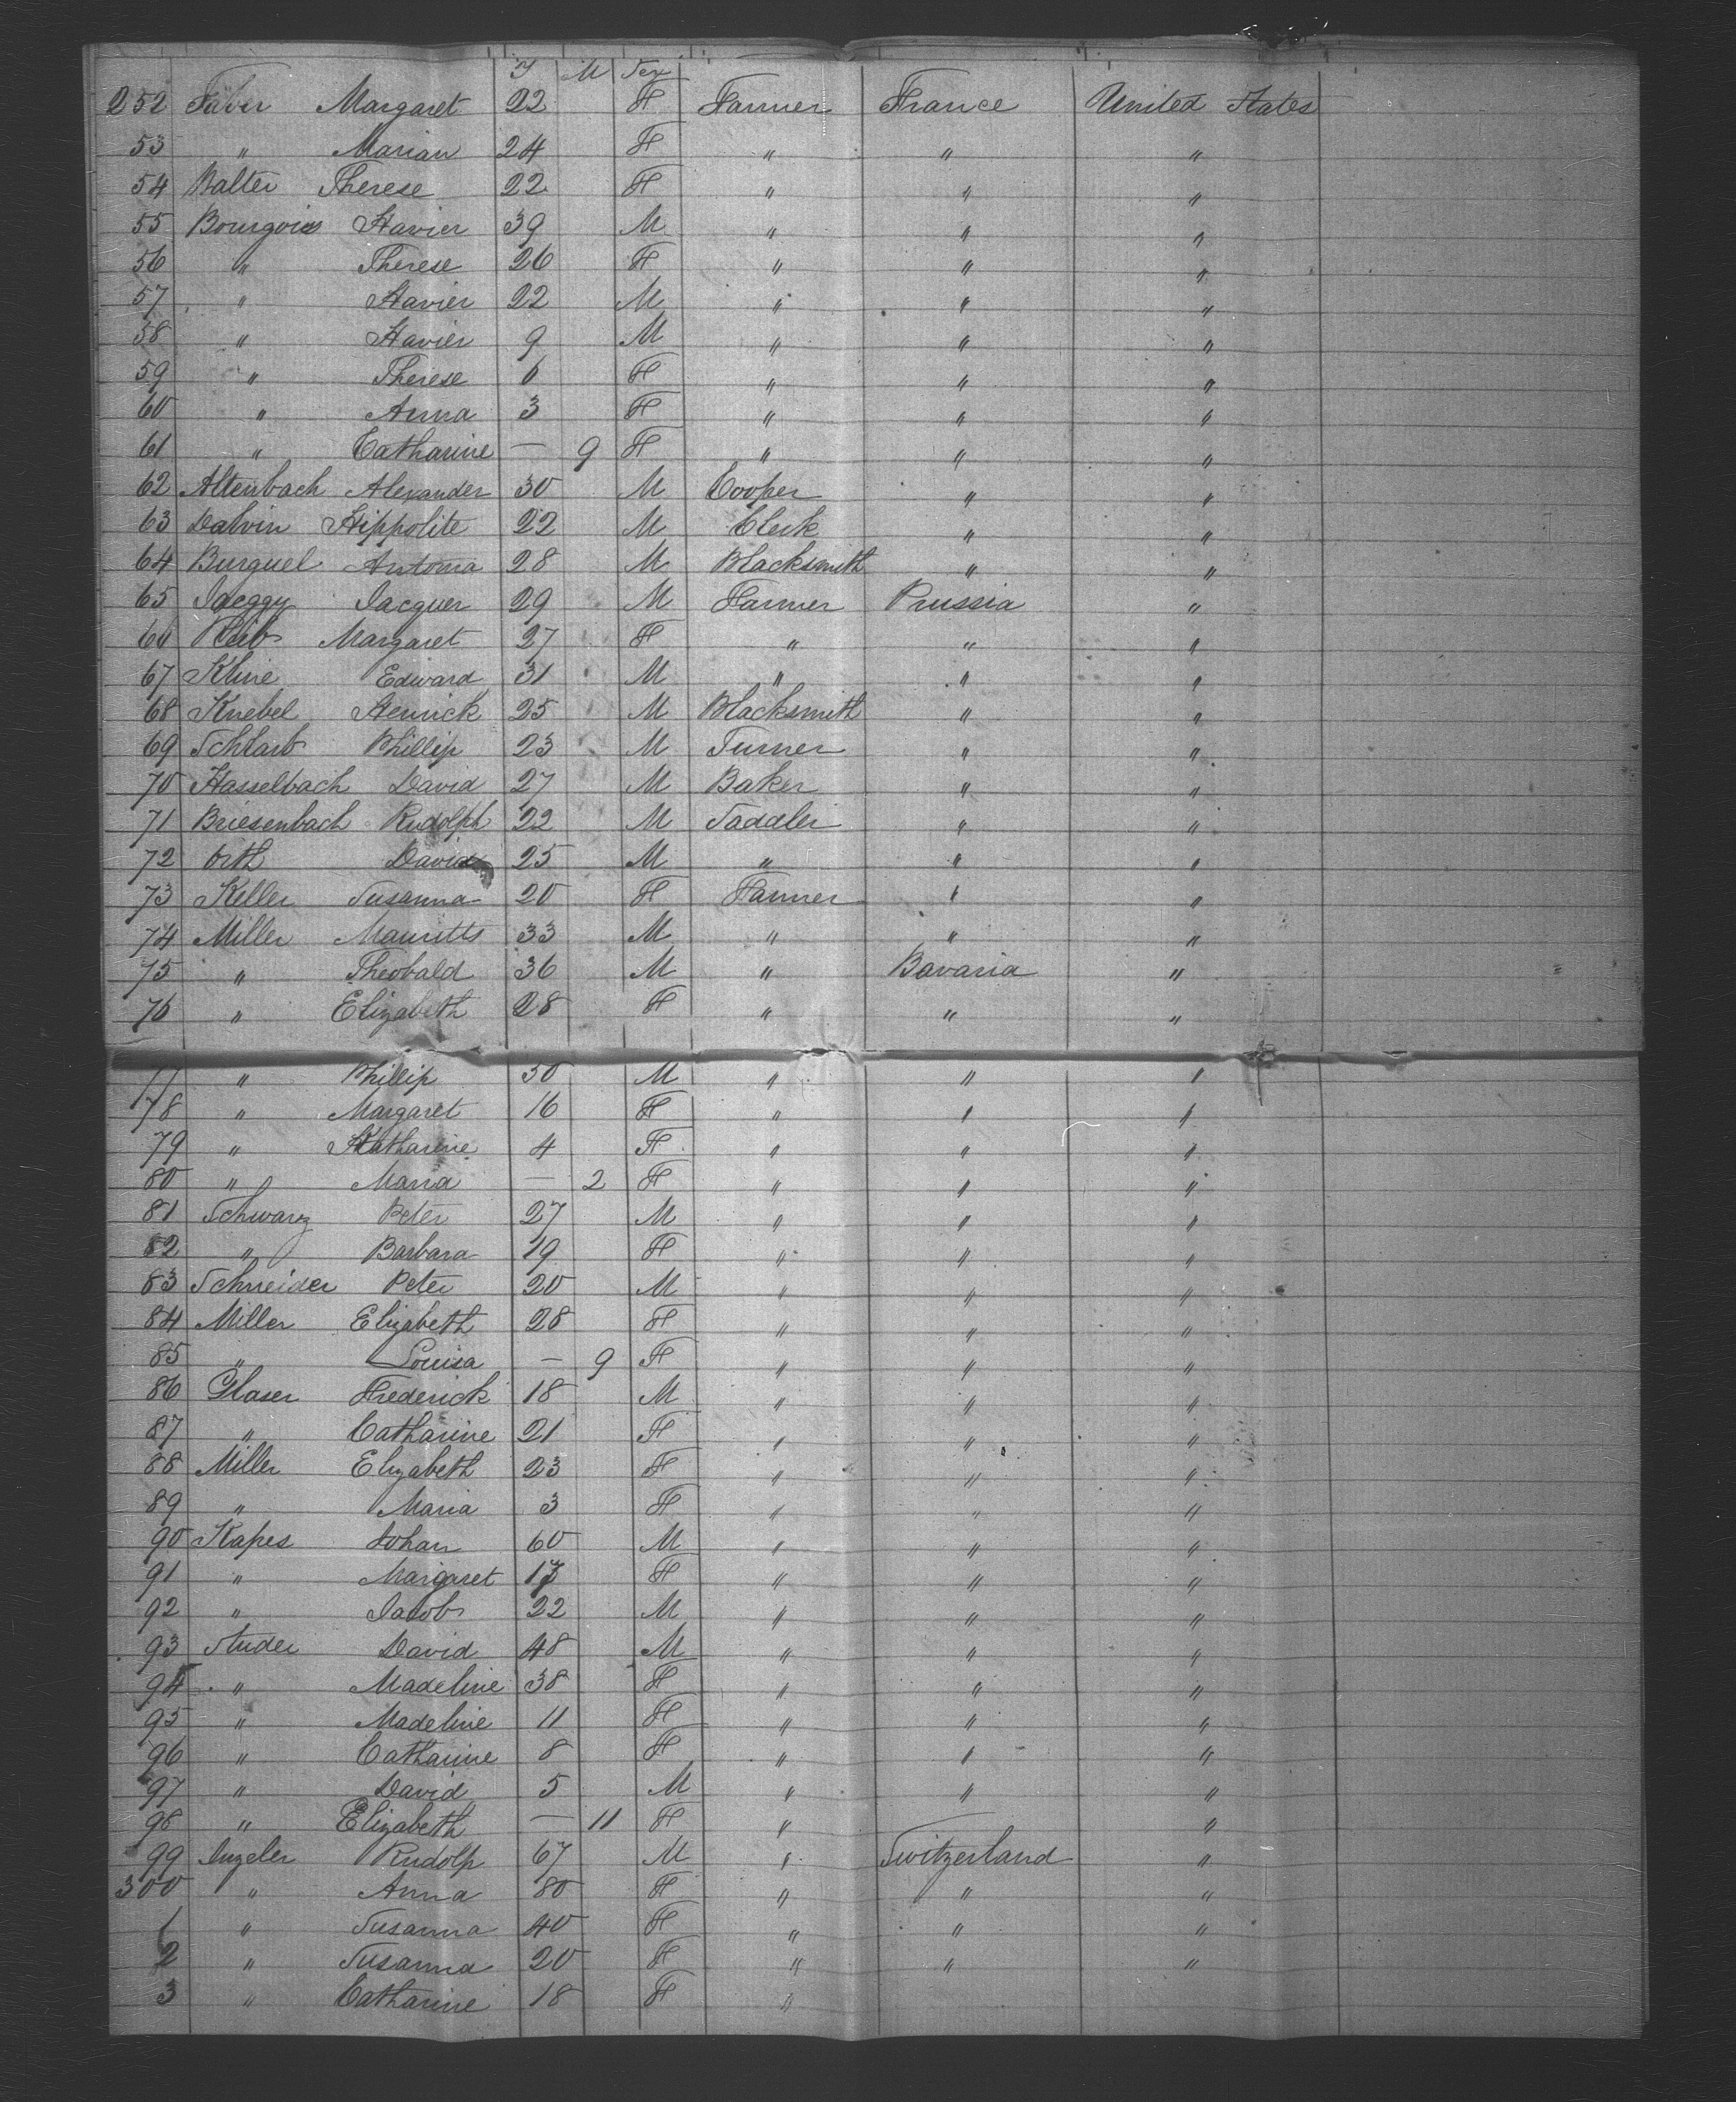 Y M Sex
252 Faber Margaret 22 F Farmer France United States
53 " Marian 24 F " " "
54 Walter Therese 22 F " " "
55 Bourgois Xavier 39 M " " "
56 " Therese 26 F " " "
57 " Xavier 22 M " " "
58 " Xavier 9 M " " "
59 " Therese 6 F " " "
60 " Anna 3 F " " "
61 " Catharine — 9 F " " "
62 Altenbach Alexander 30 M Cooper " "
63 Dalvin Hippolite 22 M Clerk " "
64 Burguel Antoma 28 M Blacksmith " "
65 Jaeggy Jacquer 29 M Farmer Prussia "
66 Margaret 27 F " " "
67 Kline Edward 31 M " " "
68 Knebel Henrick 25 M Blacksmith " "
69 Schlarb Phillip 23 M Turner " "
70 Hasselbach David 27 M Baker " "
71 Briesenbach Rudolph 22 M Saddler " "
72 Orth David 25 M " " "
73 Keller Susanna 20 F Farmer " "
74 Miller Mauritts 33 M " " "
75 " Theobald 36 M " Bavaria "
76 " Elizabeth 28 F " " "
77 " Phillip 30 M " " "
78 " Margaret 16 F " " "
79 " Katharine 4 F " " "
80 " Maria — 2 F " " "
81 Schwarz Peter 27 M " " "
82 " Barbara 19 F " " "
83 Schneider Peter 20 M " " "
84 Miller Elizabeth 28 F " " "
85 " Louisa — 9 F " " "
86 Glaser Frederick 18 M " " "
87 " Catharine 21 F " " "
88 Miller Elizabeth 23 F " " "
89 " Maria 3 F " " "
90 Kapes Johan 60 M " " "
91 " Margaret F " " "
92 " Jacob 22 M " " "
93 Studer David 48 M " " "
94 " Madeline 38 F " " "
95 " Madeline 11 F " " "
96 " Catharine 8 F " " "
97 " David 5 M " " "
98 " Elizabeth — 11 F " "
99 Inzeler Rudolp 67 M " Switzerland "
300 " Anna 80 F " " "
1 " Susanna 40 F " " "
2 " Susanna 20 F " " "
3 " Catharine 18 F "